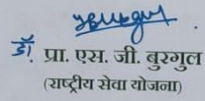 डॉ. प्रा. एस. जी. बुरगुल
(राष्ट्रीय सेवा योजना)